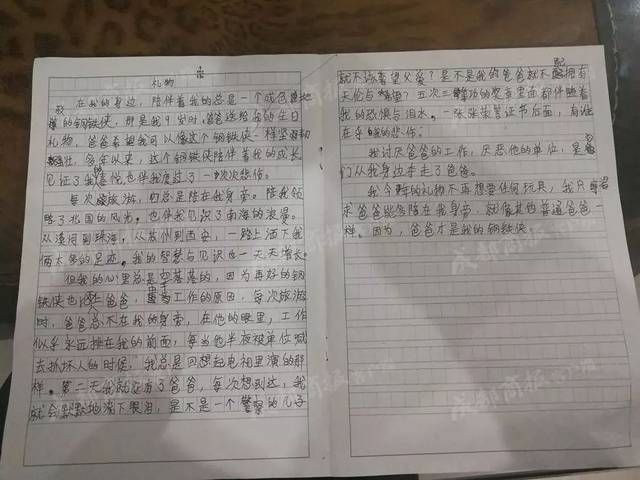 礼物
在我的身边，陪伴着我的总是一个成色
的钢铁侠，那是我8岁时，爸爸送给我的生日
礼物，爸爸希望我可以像这个钢铁侠一样坚
强壮，多年以来，这个钢铁侠陪伴着我的成长
见证了我的喜悦，也伴我度过了一次次悲伤。
每次旅游，妈总是陪在我身旁。陪我领
略了北国的风光，也伴我见识了南海的浪漫。
从遵得到珠海，从苏州到西安，一路上洒下我
俩太多的足迹。我的智慧与见识也一天天增长。
但我的心里总是空落落的，因为再好的钢
铁侠也比不上爸爸，工作的原因，每次旅游
时，爸爸总不在我的身旁，在他的眼里，工作
似乎永远排在我的前面，每当他半夜被单位喊
去抓坏人的时候，我总是回想起电视里演的那
样。第二天我就没有了爸爸，每次想到这，我
就会默默地流下眼泪，是不是一个警察的儿子
就不该奢望父爱？是不是我的爸爸就不配拥有
天伦与？五次三等功的奖章里面都伴随着
我的恐惧与泪水。一张张荣誉证书后面，有谁
在乎的悲伤。
我讨厌爸爸的工作，厌恶他的单位，是他
们从我身边夺走了爸爸。
我今年的礼物不再想要任何玩具，我只
求爸爸能多陪在我身旁，就像其他普通爸爸一
样。因为，爸爸才是我的钢铁侠。
成都商报客户端
成都商报客户端